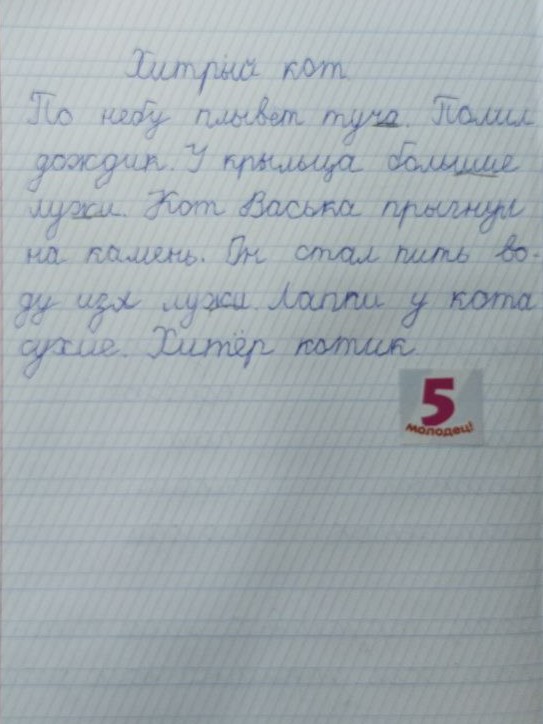 Хитрый кот
По небу плывет туча. Полил
дождик. У крыльца большие
лужи. Кот Васька прыгнул
на камень. Он стал пить во-
ду из лужи. Лапки у кота
сухие. Хитёр котик
5
молодец!